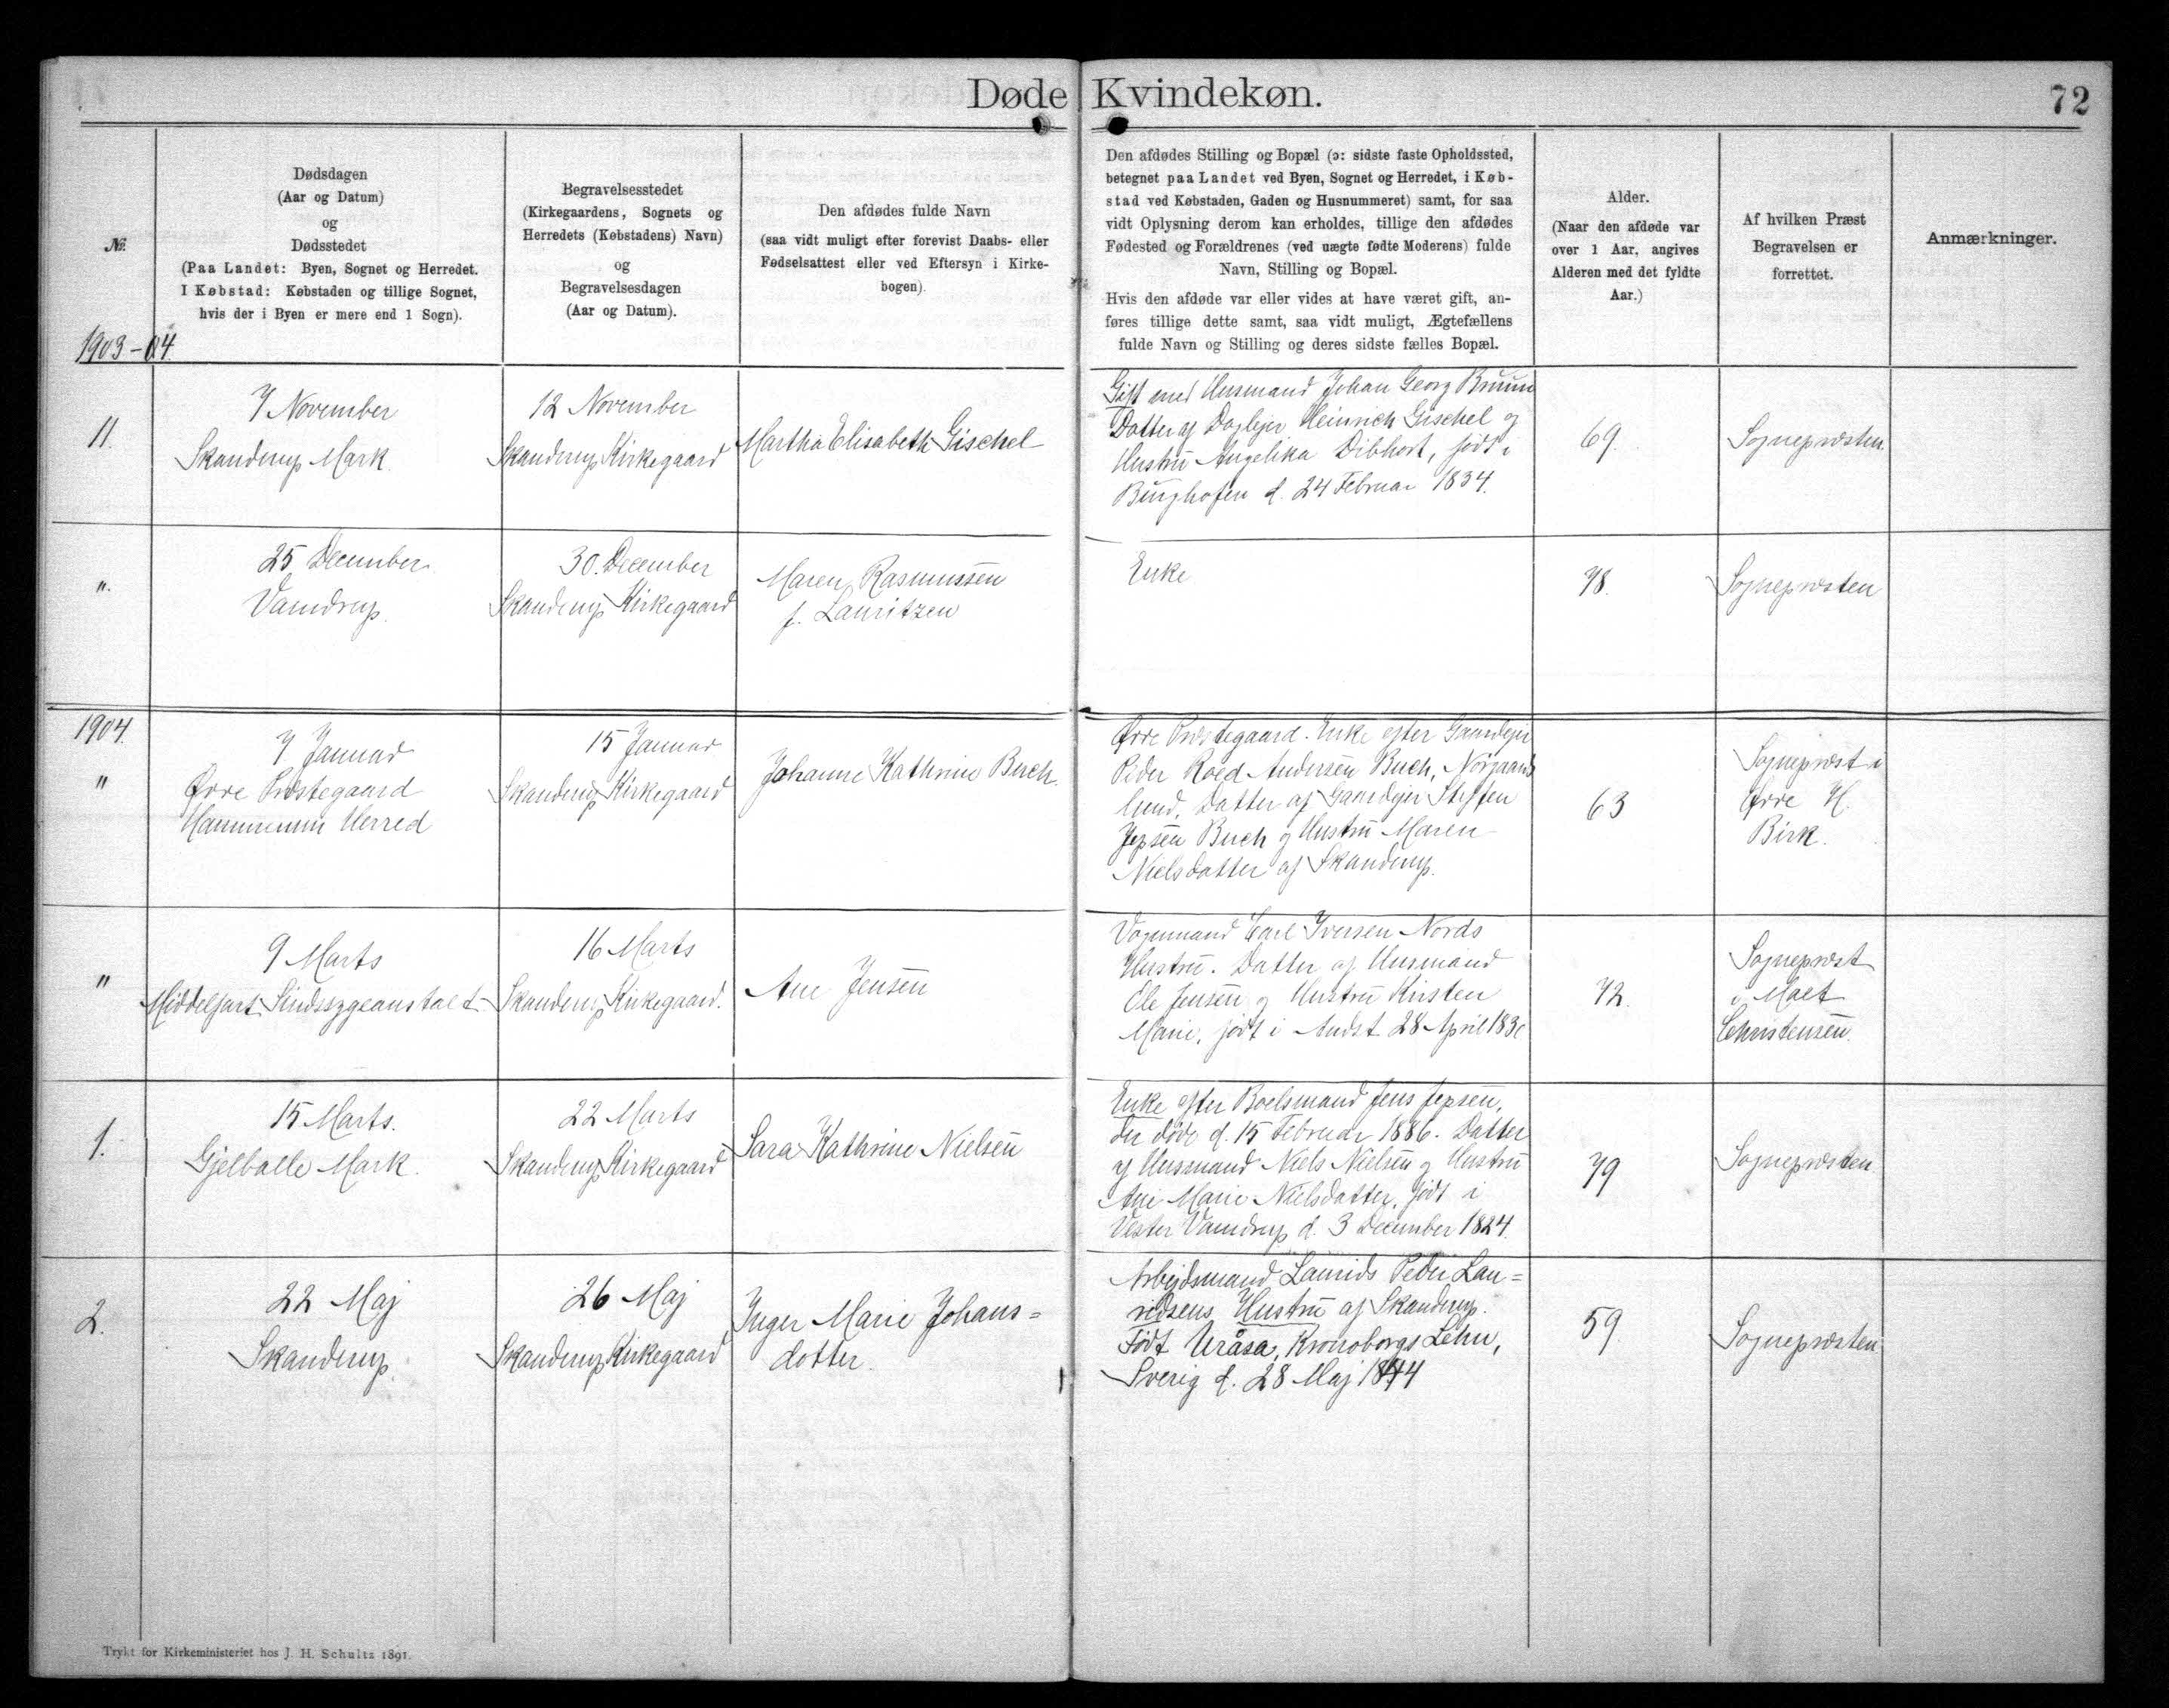 Døde Kvindekøn.
72
№.
Dødsdagen
(Aar og Datum)
og
Dødsstedet
(Paa Landet: Byen, Sognet og Herredet.
I Købstad: Købstaden og tillige Sognet,
hvis der i Byen er mere end 1 Sogn).
Begravelsesstedet
(Kirkegaardens, Sognets og
Herredets (Købstadens) Navn)
og
Begravelsesdagen
(Aar og Datum).
Den afdødes fulde Navn
(saa vidt muligt efter forevist Daabs- eller
Fødselsattest eller ved Eftersyn i Kirke-
bogen).
Den afdødes Stilling og Bopæl (ɔ: sidste faste Opholdssted,
betegnet paa Landet ved Byen, Sognet og Herredet, i Køb-
stad ved Købstaden, Gaden og Husnummeret) samt, for saa
vidt Oplysning derom kan erholdes, tillige den afdødes
Fødested og Forældrenes (ved uægte fødte Moderens) fulde
Navn, Stilling og Bopæl.
Hvis den afdøde var eller vides at have været gift, an-
føres tillige dette samt, saa vidt muligt, Ægtefællens
fulde Navn og Stilling og deres sidste fælles Bopæl.
Alder.
(Naar den afdøde var
over 1 Aar, angives
Alderen med det fyldte
Aar.)
Af hvilken Præst
Begravelsen er
forrettet.
Anmærkninger.
1903-04.
11.
7 November
Skanderup Mark.
12 November
Skanderup Kirkegaard
Martha Elisabeth Gischel
Gift med Husmand Johan Georg Bruun
Datter af Daglejer Heinrich Gischel og
Hustru Angelika Dibhort, født i
Burghofen d. 24 Februar 1834.
69.
Sognepræsten.
".
25 December
Vamdrup.
30. December
Skanderup Kirkegaard
Maren Rasmussen
f. Lauritzen
Enke
78.
Sognepræsten
1904.
"
7 Januar
Ørre Præstegaard
Hammerum Herred
15 Januar
Skanderup Kirkegaard
Johanne Kathrine Buch.
Ørre Præstegaard. Enke efter Gaardejer
Peder Roed Andersen Buch, Nørgaards
lund, Datter af Gaardejer Steffen
Jepsen Buch og Hustru Maren
Nielsdatter af Skanderup.
63
Sognepræst i
Ørre H.
Birk.
"
9 Marts
Middelfart Sindssygeanstalt
16 Marts
Skanderup Kirkegaard.
Ane Jensen
Vognmand Carl Iversen Nords
Hustru. Datter af Husmand
Ole Jensen og Hustru Kirsten
Marie, født i Andst 28 April 183
72.
Sognepræst
i Malt
Christensen.
1.
15 Marts.
Gjelballe Mark.
22 Marts
Skanderup Kirkegaard
Sara Kathrine Nielsen
Enke efter Boelsmand Jens Jepsen,
der døde d. 15 Februar 1886. Datter
af Husmand Niels Nielsen og Hustru
Ane Marie Nielsdatter, født i
Vester Vamdrup d. 3 December 1824.
79
Sognepræsten
2.
22 Maj
Skanderup.
26 Maj
Skanderup Kirkegaard
Inger Marie Johans=
dotter.
Arbejdsmand Laurids Peder Lau=
ridsens Hustru af Skanderup.
Født Uråsa, Kronoborgs Lehn,
Sverig d. 28 Maj 1844
59.
Sognepræsten
Trykt for Kirkeministeriet hos J. H. Schultz 1891.